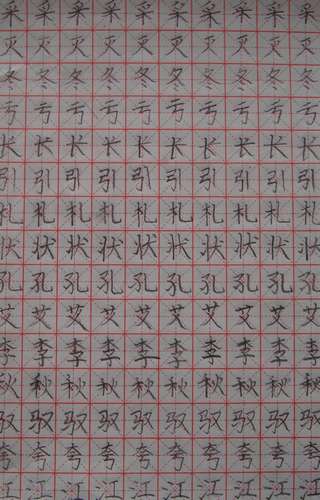 采采采采采采采采采采
灭灭灭灭灭灭灭灭灭灭
冬冬冬冬冬冬冬冬冬冬
亏亏亏亏亏亏亏亏亏亏
长长长长长长长长长长
引引引引引引引引引引
札札札札札札札札札札
状状状状状状状状状状
孔孔孔孔孔孔孔孔孔孔
艾艾艾艾艾艾艾艾艾艾
李李李李李李李李李李
秋秋秋秋秋秋秋秋秋秋
驭驭驭驭驭驭驭驭驭驭
夸夸夸夸夸夸夸夸夸夸
江江江江江江江江江江